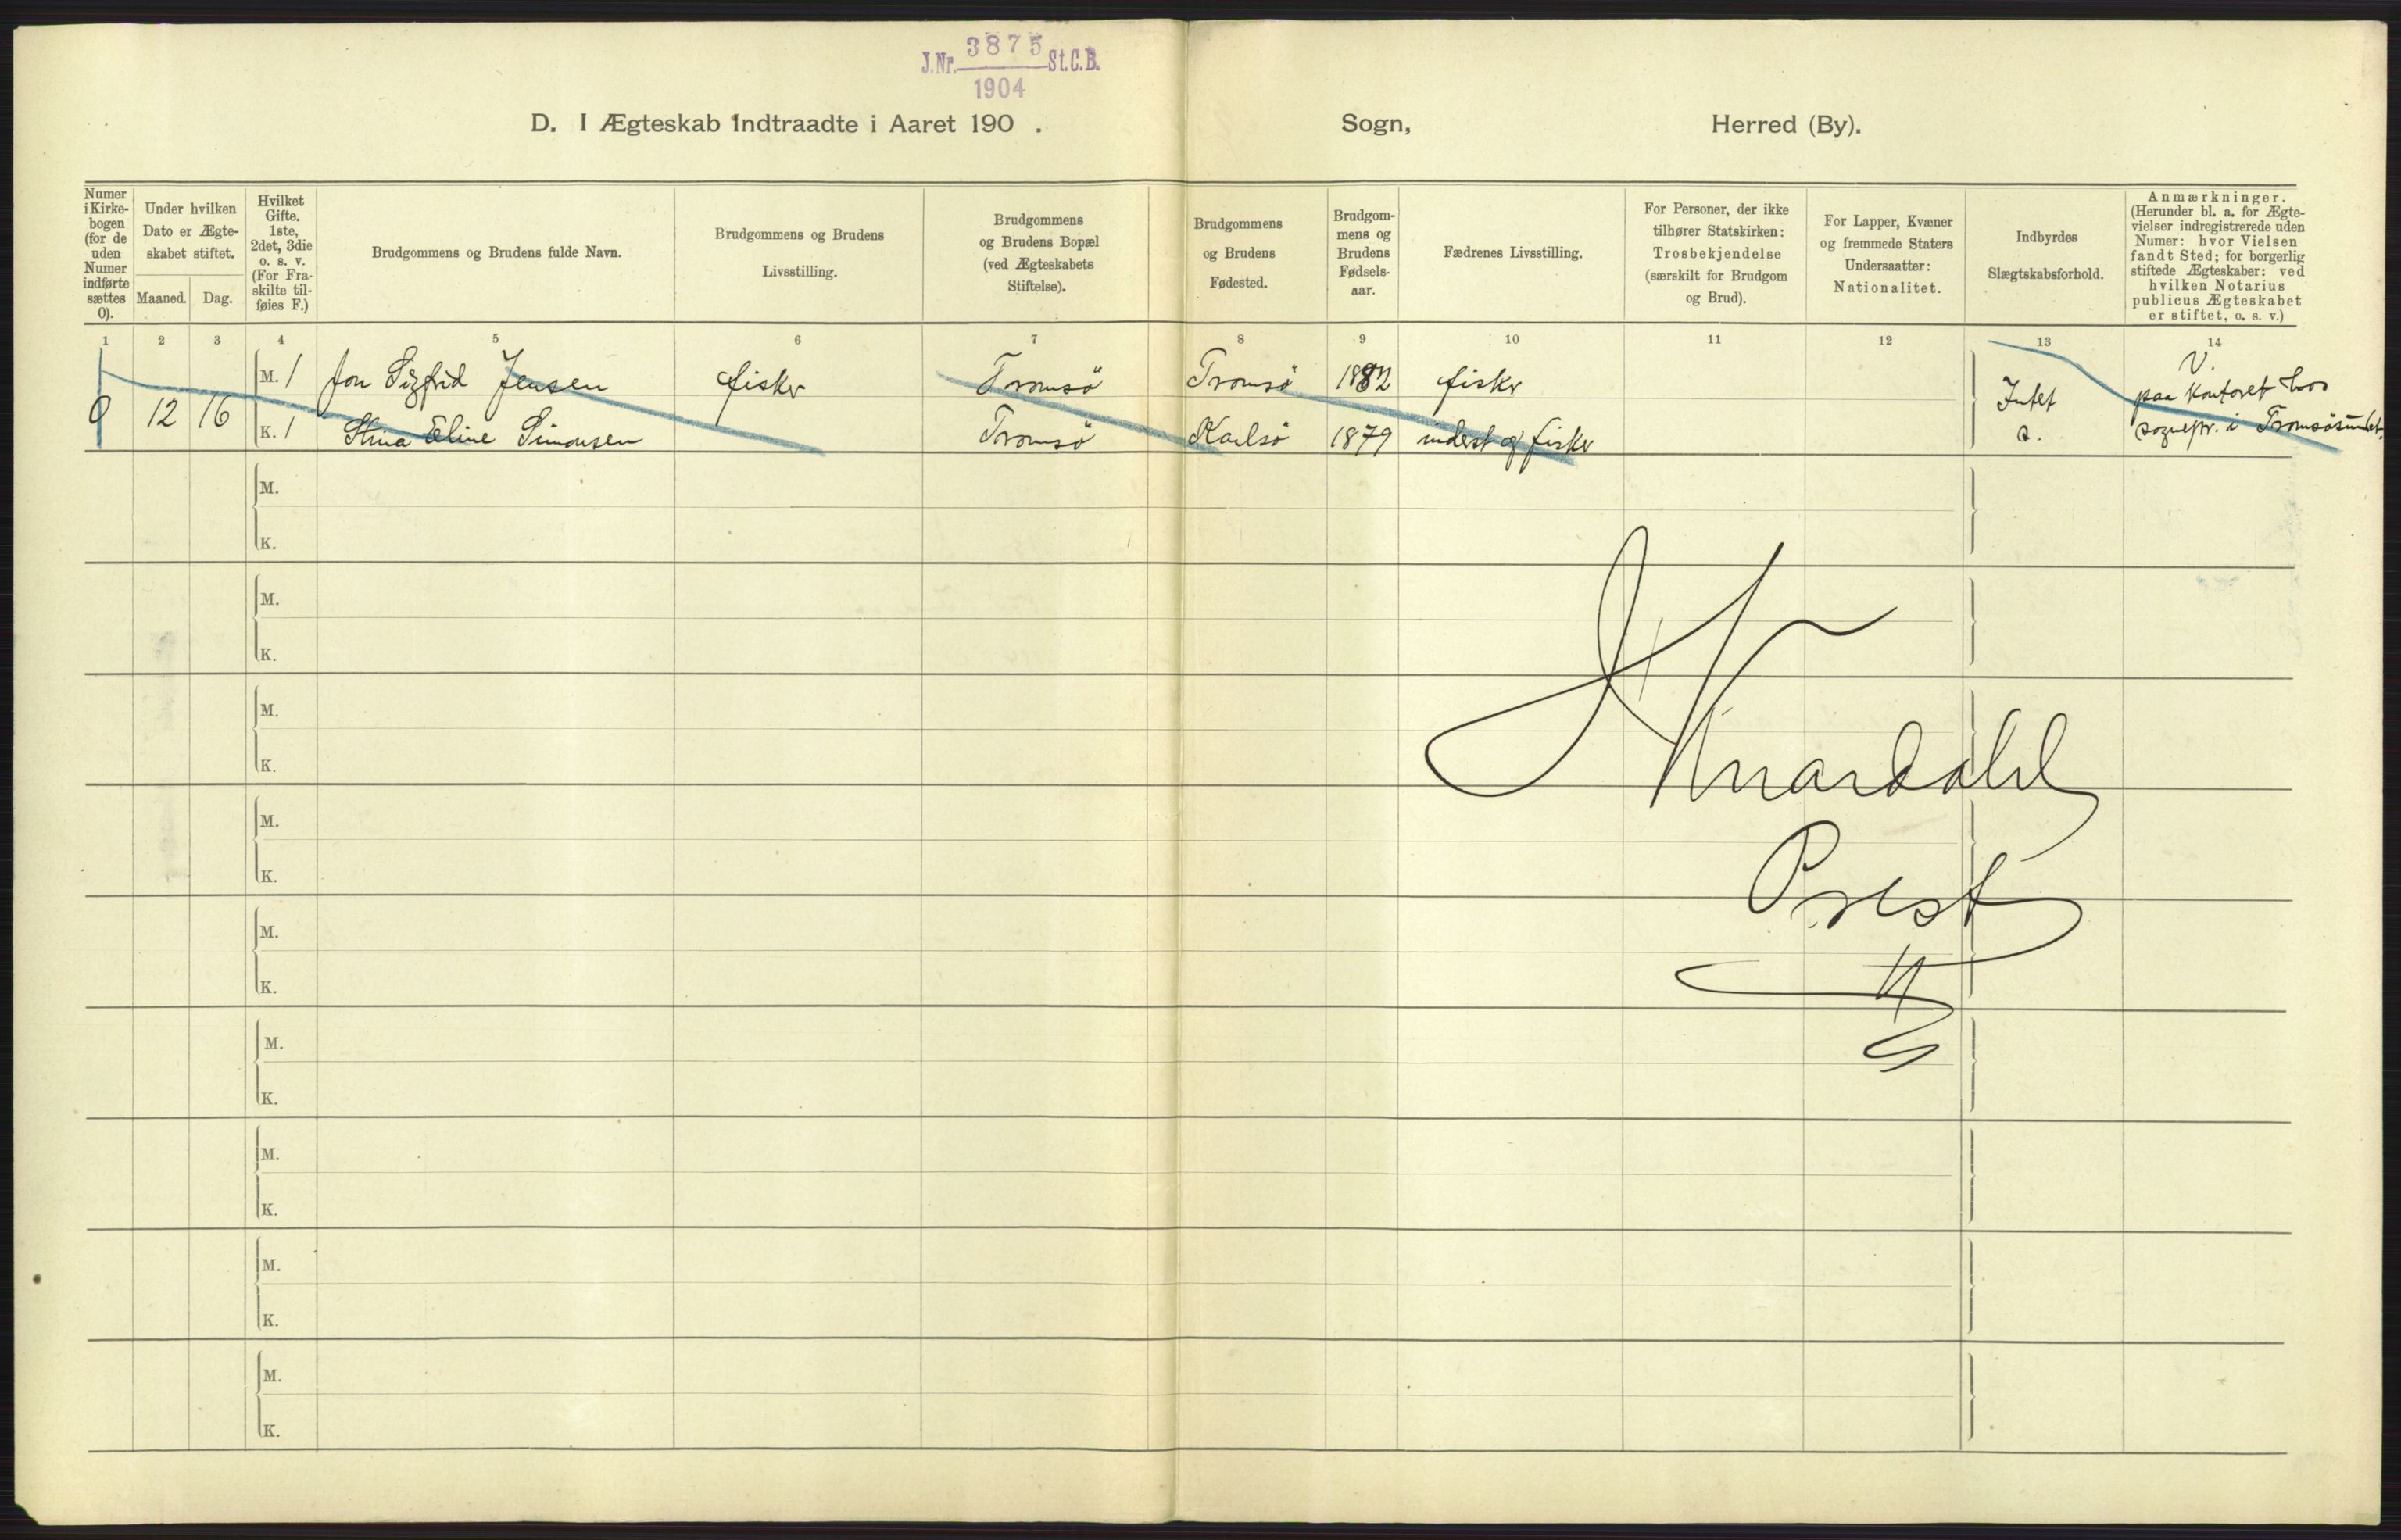 J.Nr. 3875 St.C.B.
1904
D. I Ægteskab indtraadte i Aaret 190 . Sogn, Herred (By).
Numer i Kirkebogen (for de uden Numer indførte sættes 0).
Under hvilken Dato er Ægteskabet stiftet.
Maaned. Dag.
Hvilket Gifte. 1ste, 2det, 3die o. s. v. (For Fraskilte tilføies F.)
Brudgommens og Brudens fulde Navn.
Brudgommens og Brudens Livsstilling.
Brudgommens og Brudens Bopæl (ved Ægteskabets Stiftelse).
Brudgommens og Brudens Fødested.
Brudgommens og Brudens Fødselsaar.
Fædrenes Livsstilling.
For Personer, der ikke tilhører Statskirken: Trosbekjendelse (særskilt for Brudgom og Brud).
For Lapper, Kvæner og fremmede Staters Undersaatter: Nationalitet.
Indbyrdes Slægtskabsforhold.
Anmærkninger. (Herunder bl. a. for Ægtevielser indregistrerede uden Numer: hvor Vielsen fandt Sted; for borgerlig stiftede Ægteskaber: ved hvilken Notarius publicus Ægteskabet er stiftet, o. s. v.)
1 2 3 4 5 6 7 8 9 10 11 12 13 14
M. 1 Jon Sigfrid Jensen fisker Tromsö Tromsö 1882 fisker Intet V. paa kontoret hos
0 12 16 K. 1 Stina Eline Simonsen Tromsö Karlsö 1879 inderst og fisker s. sognepr. i Tromsösundet.
M.
K.
M.
K.
M.
K.
M.
K.
M.
K.
M.
K.
M.
K.
M.
K.
M.
K.
Knardahl
Prest